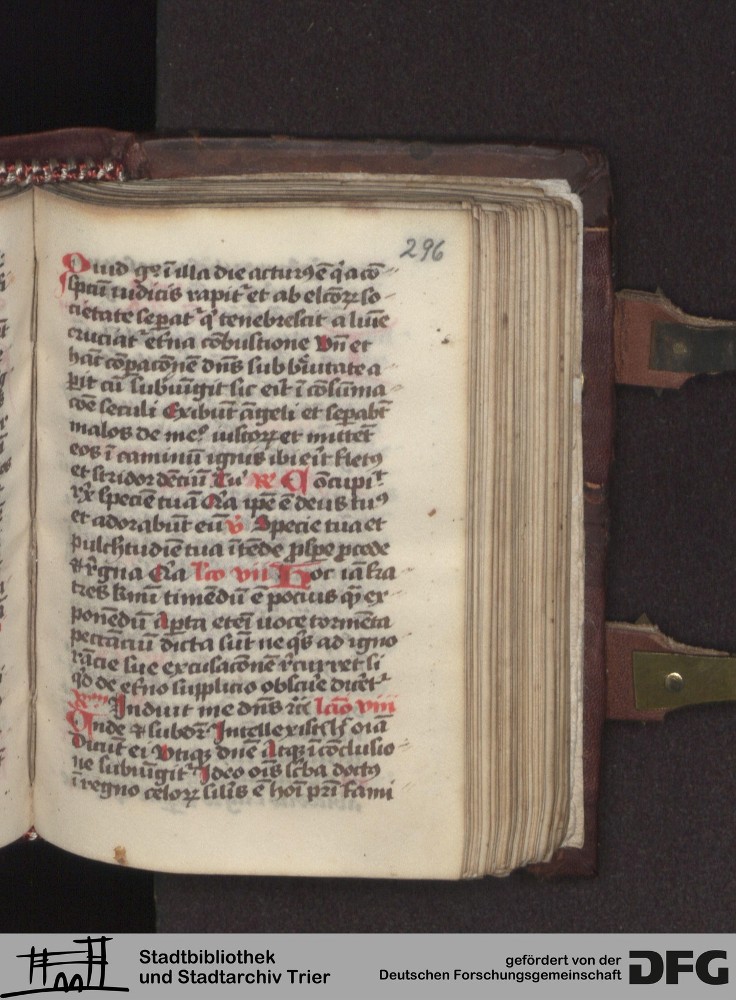 296
Quid gͦ i illa die acturꝰ ē q̄ a cō
spectu iudicis rapit᷑ et ab elcōꝝ so
cietate separat᷑ qͥ tenebrescit a lūie
cruciat᷑ et̄na cōbustione Vn̄ et
hāc cōpacōnē dn̄s sub bͥuitate a
ꝑit cū subiūgit sic erit ī cōsūma
cōe seculi Exibūt āgeli et sepabt̄
malos de meͩ iustoꝝ et mittēt
eos ī caminū ignis ibi erit fletꝰ
et stridor dēciū Tu R̄ Cōcupiꝰᵗ
rex speciē tuā Qͥa ip̄e ē deus tuꝰ
et adorabūt eū v̄ Specie tua et
pulchͥtudīe tua ītēde ꝓsꝑe ꝓcede
et regna Qͥa lc̄o vii Hoc iā fra
tres kmi timēdū ē pocius qͣ̄ ex
ponēdū Aꝑta etei uoce tormēta
peccāciū dicta sūt ne qͥs ad igno
rācie sue excusacōnē recurret si
qͥd de et̄no supplicio obscure dicēt᷑
Rm̄ Induit me dn̄s lc̄ō viii
Vnde et subdͥ Intellexistis h̄ oīa
Dicūt ei Vtiqꝫ dn̄e Atqꝫ ī cōclusio
ne subiūgit Ideo oīs sc̄ba doctꝰ
ī regno celoꝝ silīs ē hoī pr̄i fami
Stadtbibliothek
und Stadtarchiv Trier
gefördert von der
Deutschen Forschungsgemeinschaft
DFG